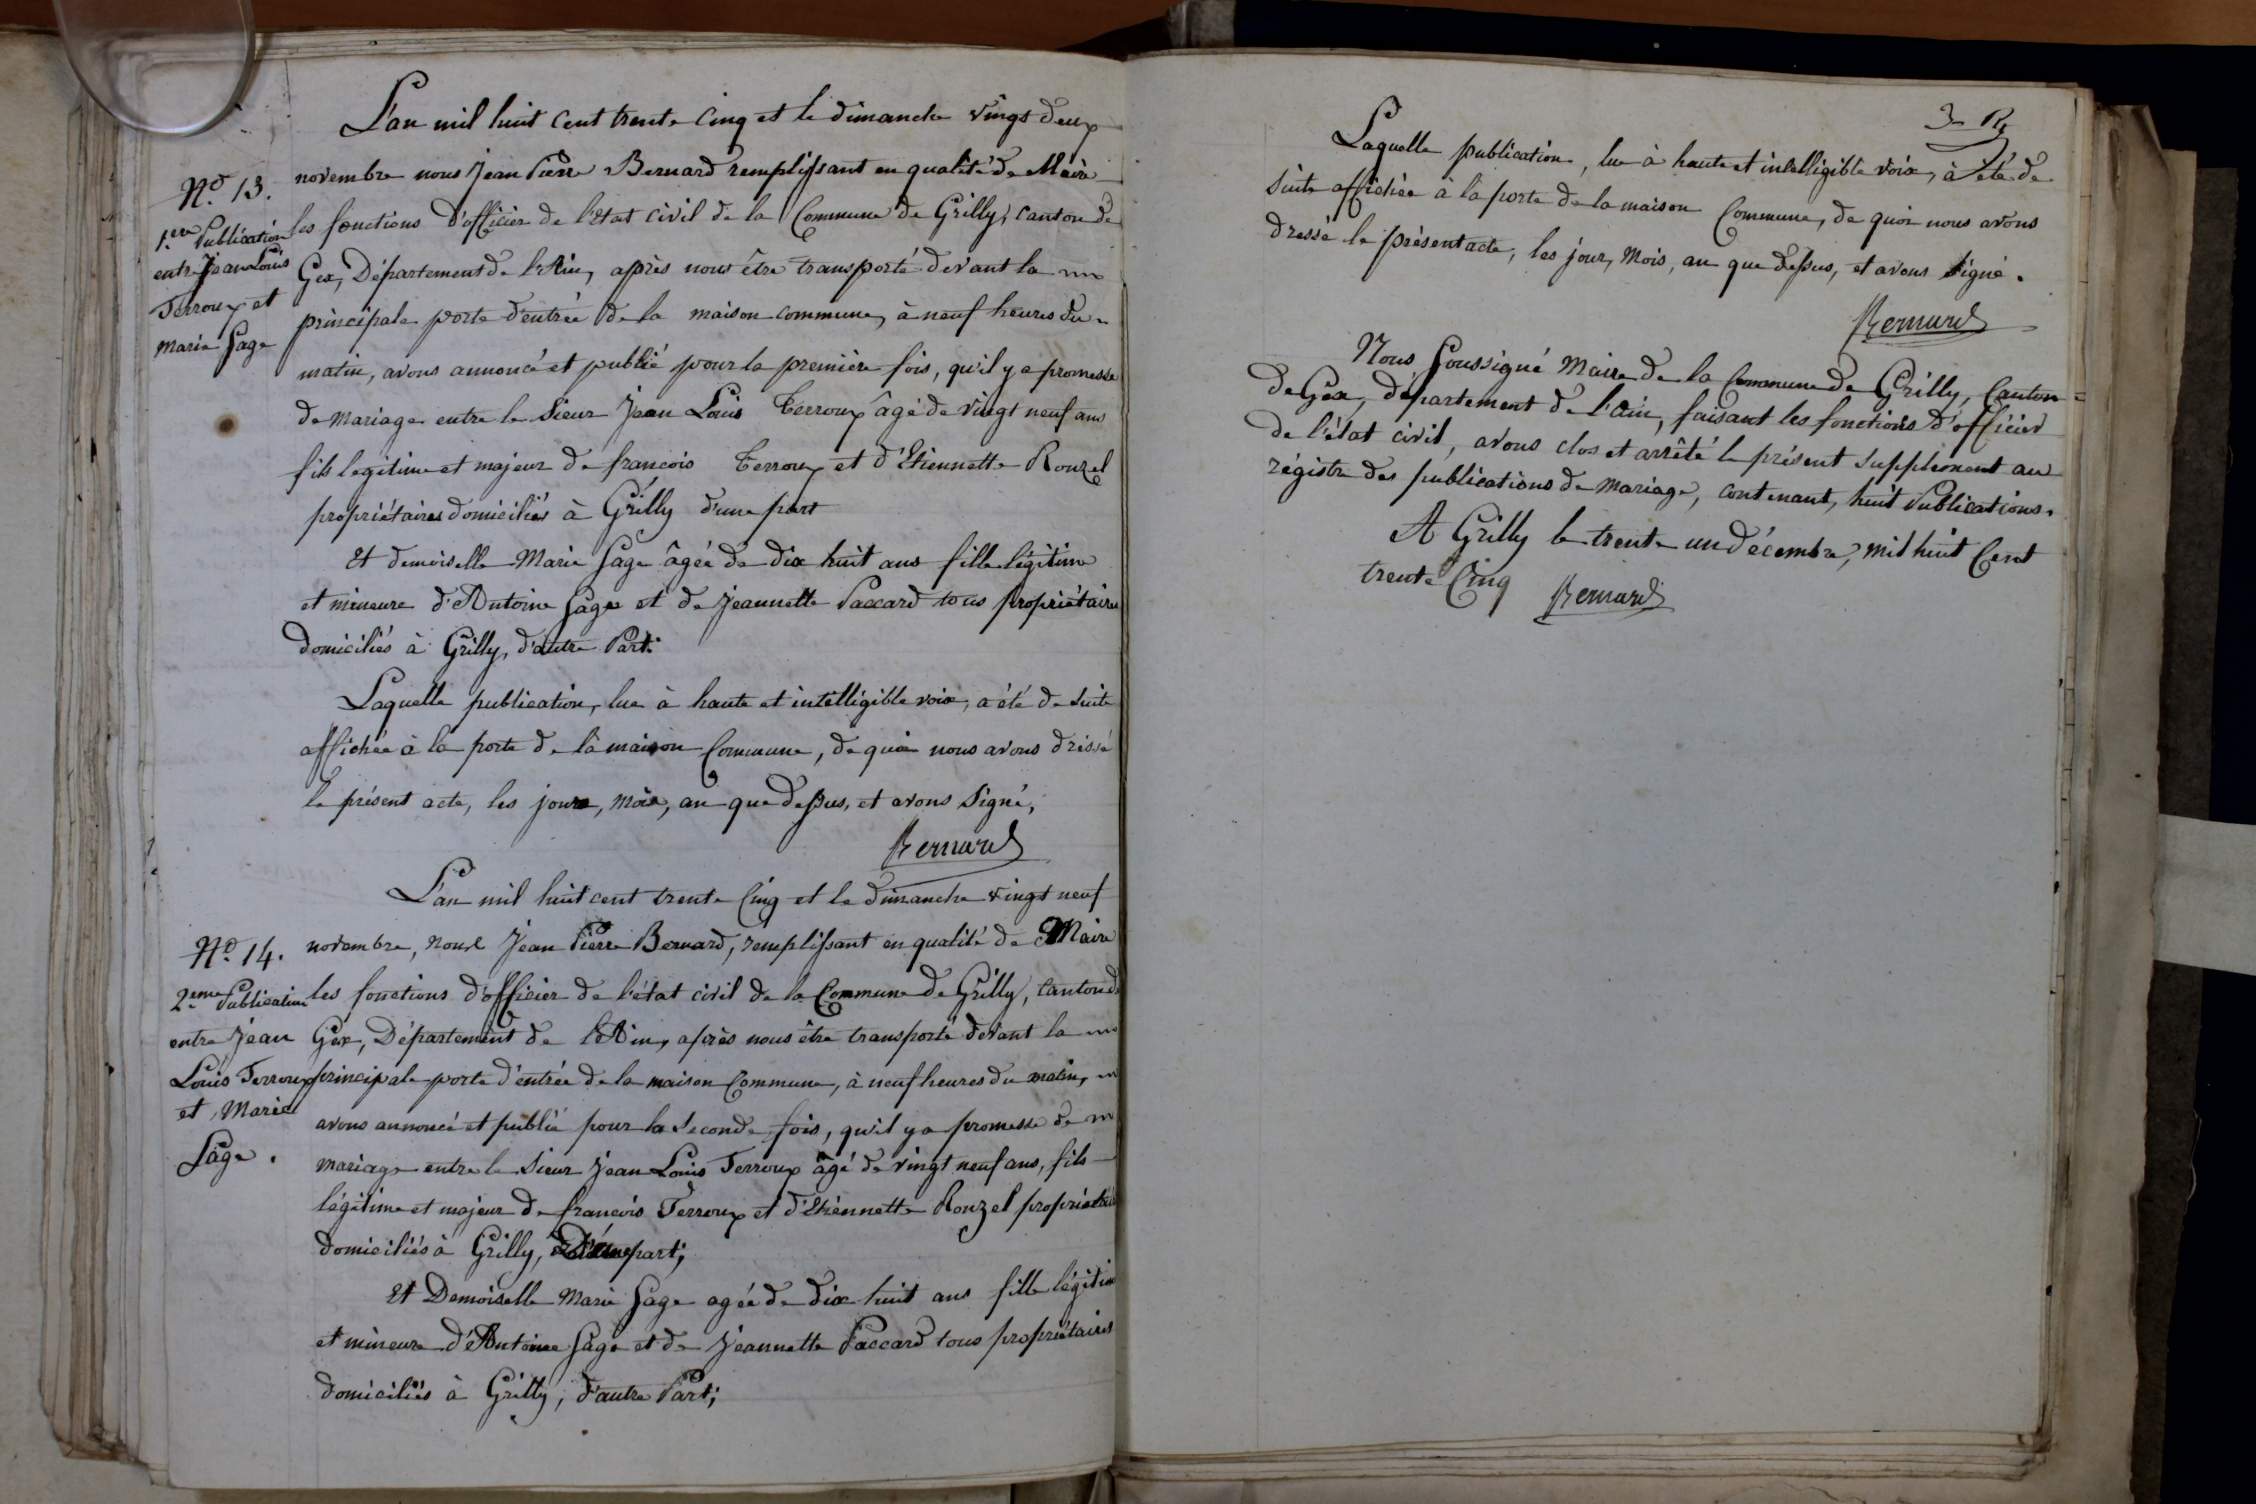 L'an mil huit cent trente cinq et le dimanche vingt deux
N.o 13.
1.ere Publication
entre Jean Louis
Terroux et
Marie Sage
novembre nous Jean Pierre Bernard remplissant en qualité de Maire
les fonctions d'officier de l'état civil de la Commune de Grilly, canton de
Gex, Département de l'Ain, après nous être transporté devant la
principale porte d'entrée de la maison commune, à neuf heures du
matin, avons annoncé et publié pour la première fois, qu'il y a promesse
de mariage entre le Sieur Jean Louis Terroux âgé de vingt neuf ans
fils legitime et majeur de francois Terroux et d'Etiennette Rouzel
propriétaires domiciliés à Grilly d'une part
Et demoiselle Marie Sage âgée de dix huit ans fille légitime
et mineure d'Antoine Sage et de Jeannette Paccard tous propriétaires
domiciliés à Grilly, d'autre Part.
Laquelle publication, lue à haute et intelligible voix, a été de suite
affichée à la porte de la maison Commune, de quoi nous avons dressé
le présent acte, les jour, mois, an que dessus, et avons Signé,
Bernard
L'an mil huit cent trente Cinq et le dimanche vingt neuf
N.o 14.
2.eme Publication
entre Jean
Louis Terroux
et Marie
Sage.
novembre, nous Jean Pierre Bernard, remplissant en qualité de Maire
les fonctions d'officier de l'état civil de la Commune de Grilly, canton de
Gex, Département de l'Ain, après nous être transporté devant la
principale porte d'entrée de la maison Commune, à neuf heures du matin,
avons annoncé et publié pour la seconde fois, qu'il y a promesse de
mariage entre le Sieur Jean Louis Terroux âgé de vingt neuf ans, fils
légitime et majeur de francois Terroux et d'Etiennette Rouzel propriétaires
domiciliés à Grilly, D'une part;
Et Demoiselle Marie Sage agée de dix huit ans fille légitime
et mineure d'Antoine Sage et de Jeannette Paccard tous propriétaires
domiciliés à Grilly, d'autre Part;
Laquelle publication, lue à haute et intelligible voix, à été de
suite affichée à la porte de la maison Commune, de quoi nous avons
dressé le présent acte, les jour, Mois, an que dessus, et avons signé.
Bernard
Nous Soussigné Maire de la Commune de Grilly, Canton
de Gex, département de l'ain, faisant les fonctions d'officier
de l'état civil, avons clos et arrêté le présent supplément au
régistre des publications de mariage, contenant, huit Publications.
A Grilly le trente un décembre, mil huit Cent
trente Cinq Bernard